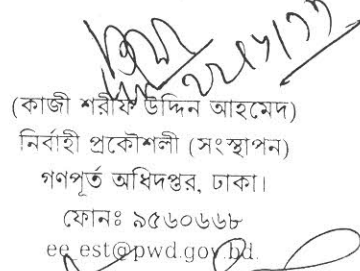 (কাজী শরীফ উদ্দিন আহমেদ)
নির্বাহী প্রকৌশলী (সংস্থাপন)
গণপূর্ত অধিদপ্তর, ঢাকা।
ফোনঃ ৯৫৬০৬৬৮
ee_est@pwd.gov.bd.